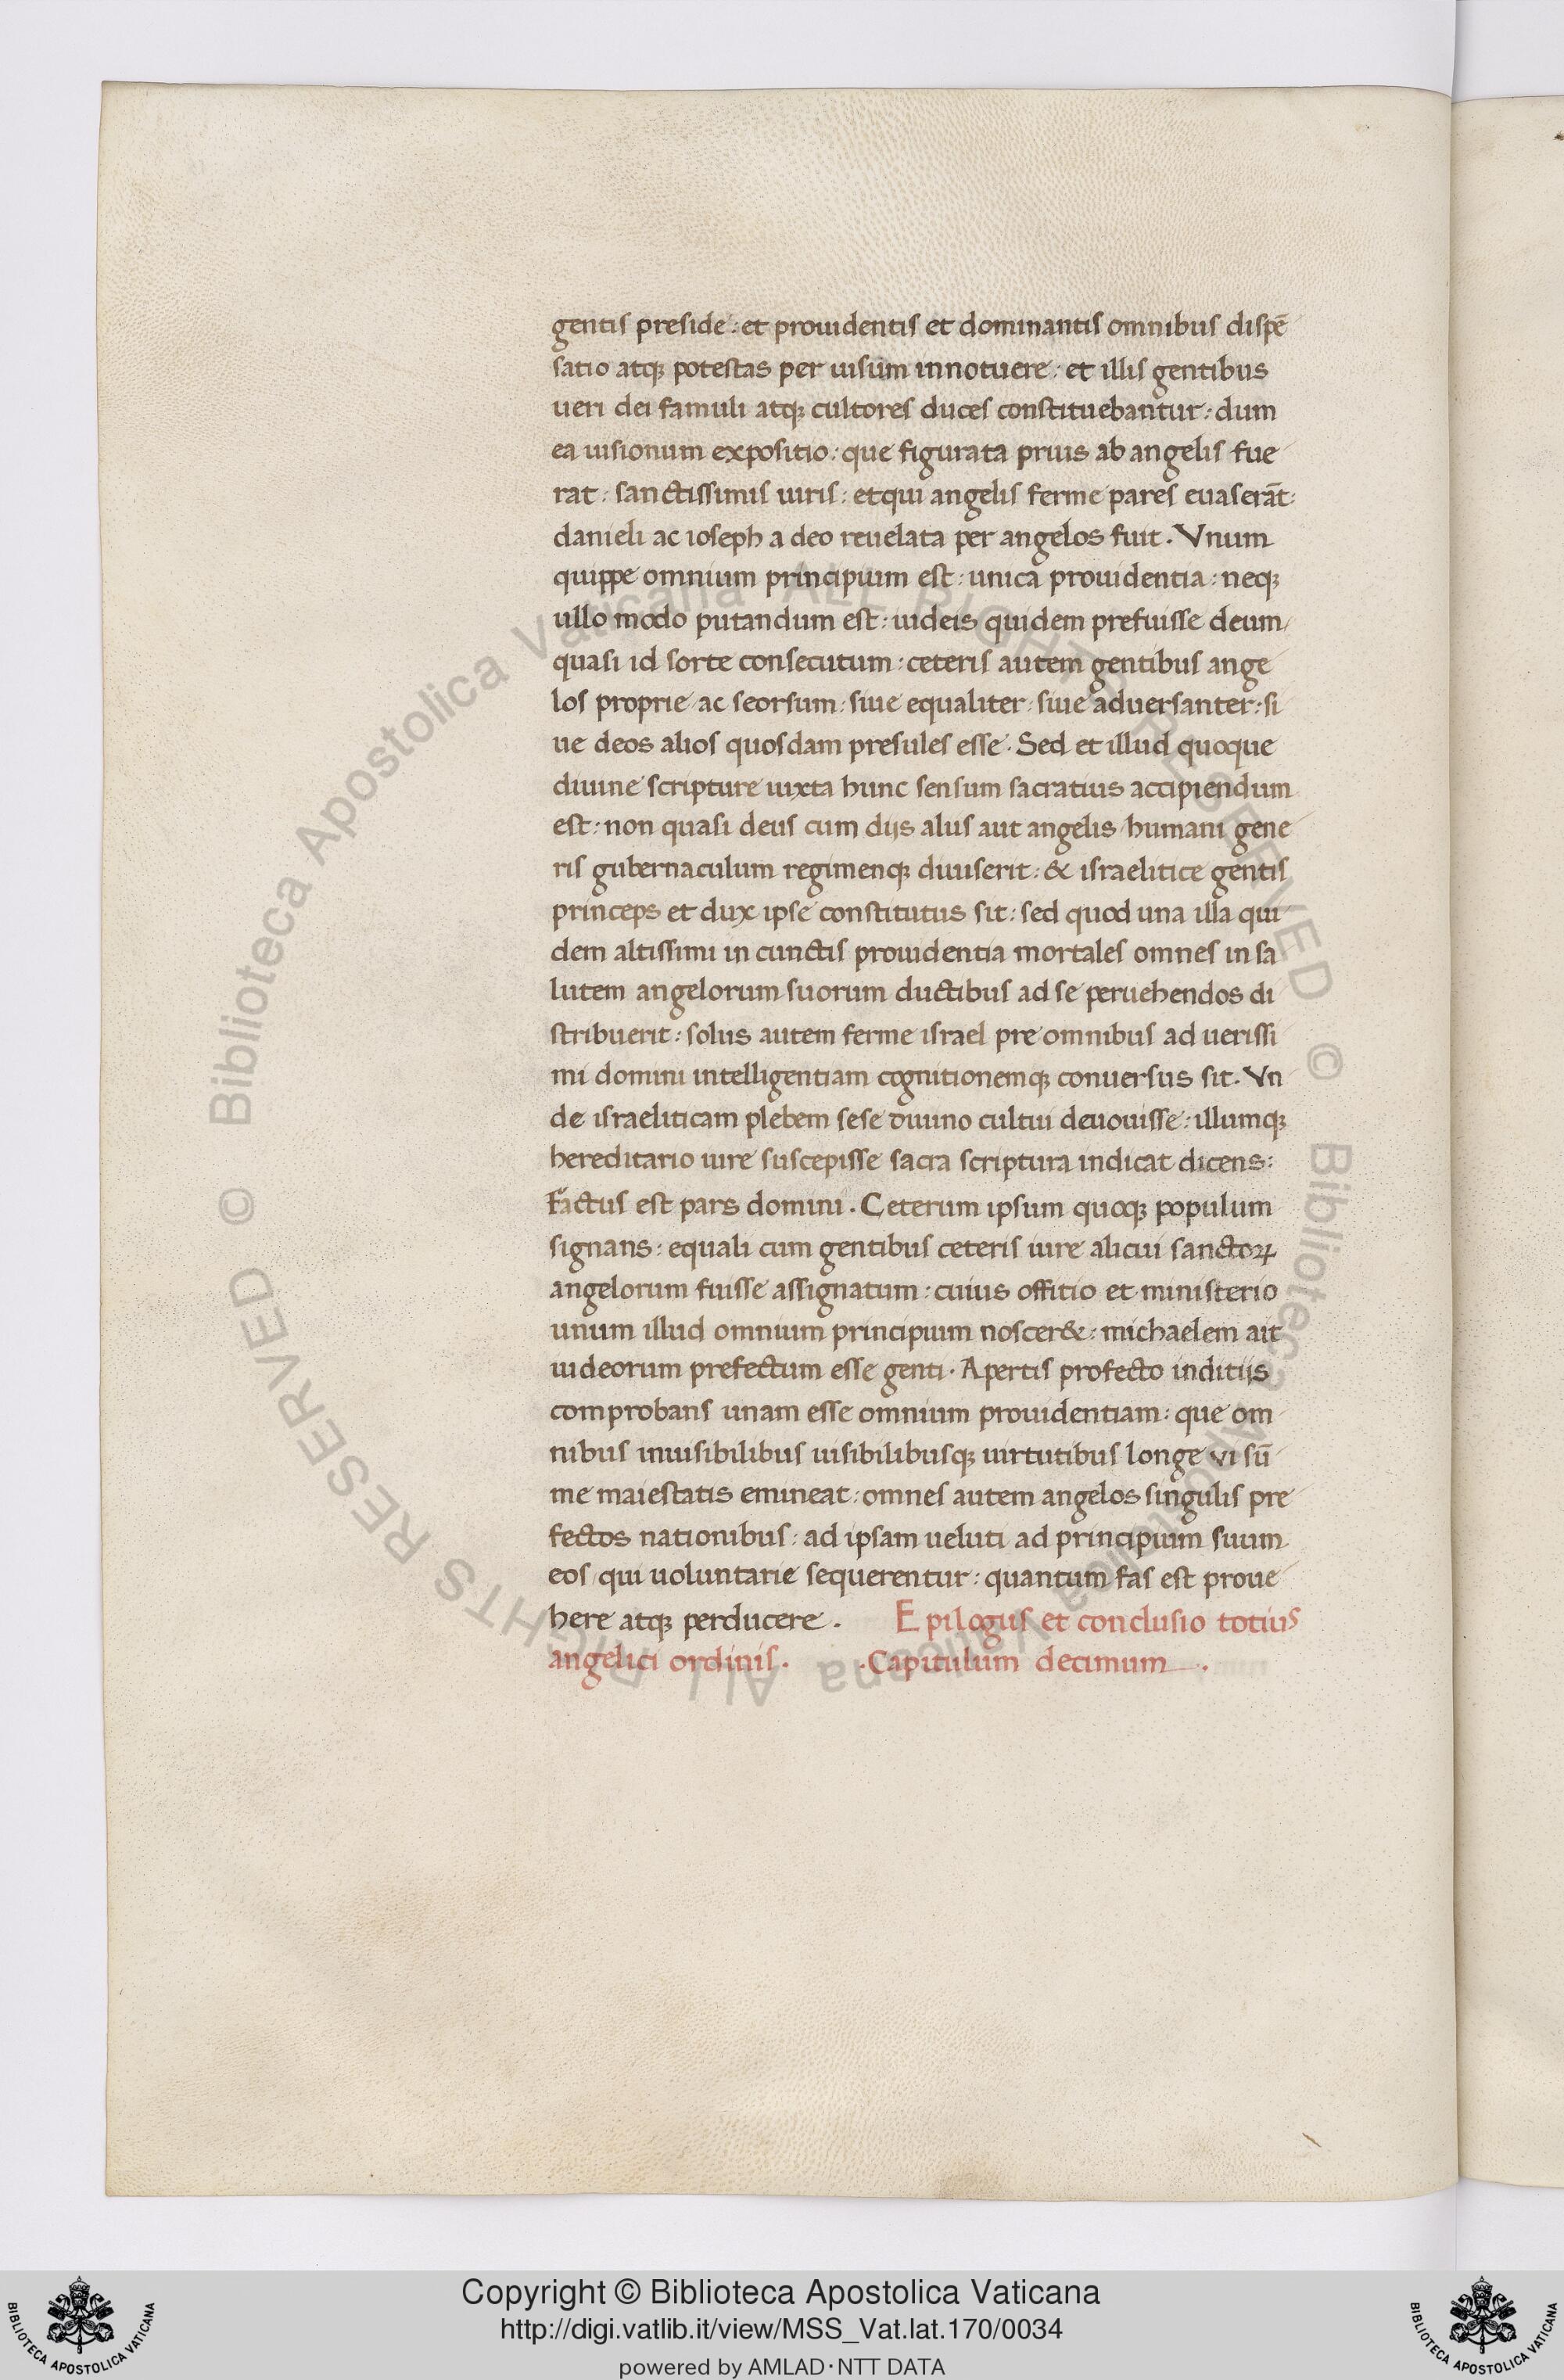 gentis preside: et prouidentis et dominantis omnibus dispē
satio atqꝫ potestas per uisum innotuere: et illis gentibus
ueri dei famuli atqꝫ cultores duces constituebantur: dum
ea uisionum expositio: que figurata prius ab angelis fue
rat: sanctissimis uiris: etqui angelis ferme pares euaserāt:
danieli ac ioseph a deo reuelata per angelos fuit. Vnum
quippe omnium principium est: unica prouidentia: neqꝫ
ullo modo putandum est: iudeis quidem prefuisse deum/
quasi id sorte consecutum: ceteris autem gentibus ange
los proprie/ac seorsum: siue equaliter: siue aduersanter: si
ue deos alios quosdam presules esse. Sed et illud quoque
diuine scripture iuxta hunc sensum sacratius accipiendum
est: non quasi deus cum dijs alijs aut angelis/humani gene
ris gubernaculum regimenqꝫ diuiserit: & israelitice gentis
princeps et dux ipse constitutus sit: sed quod una illa qui
dem altissimi in cunctis prouidentia mortales omnes in sa
lutem angelorum suorum ductibus ad se peruehendos di
stribuerit: solus autem ferme israel pre omnibus ad uerissi
mi domini intelligentiam cognitionemqꝫ conuersus sit. Vn
de israeliticam plebem sese diuino cultui deuouisse: illumqꝫ
hereditario iure suscepisse sacra scriptura indicat dicens:
Factus est pars domini. Ceterum ipsum quoqꝫ populum
signans: equali cum gentibus ceteris iure alicui sanctoꝝ
angelorum fuisse assignatum: cuius offitio et ministerio
unum illud omnium principium noscer&: michaelem ait
iudeorum prefectum esse genti. Apertis profecto inditijs
comprobans unam esse omnium prouidentiam: que om
nibus inuisibilibus uisibilibusqꝫ uirtutibus longe vi sū
me maiestatis emineat: omnes autem angelos singulis pre
fectos nationibus: ad ipsam ueluti ad principium suum
eos/qui uoluntarie sequerentur: quantum fas est proue
here atqꝫ perducere. Epilogus et conclusio totius
angelici ordinis. .Capitulum decimum.
© Biblioteca Apostolica Vaticana ALL RIGHTS RESERVED © Biblioteca Apostolica Vaticana ALL RIGHTS RESERVED
Copyright © Biblioteca Apostolica Vaticana
http://digi.vatlib.it/view/MSS_Vat.lat.170/0034
powered by AMLAD·NTT DATA
BIBLIOTECA APOSTOLICA VATICANA
BIBLIOTECA APOSTOLICA VATICANA